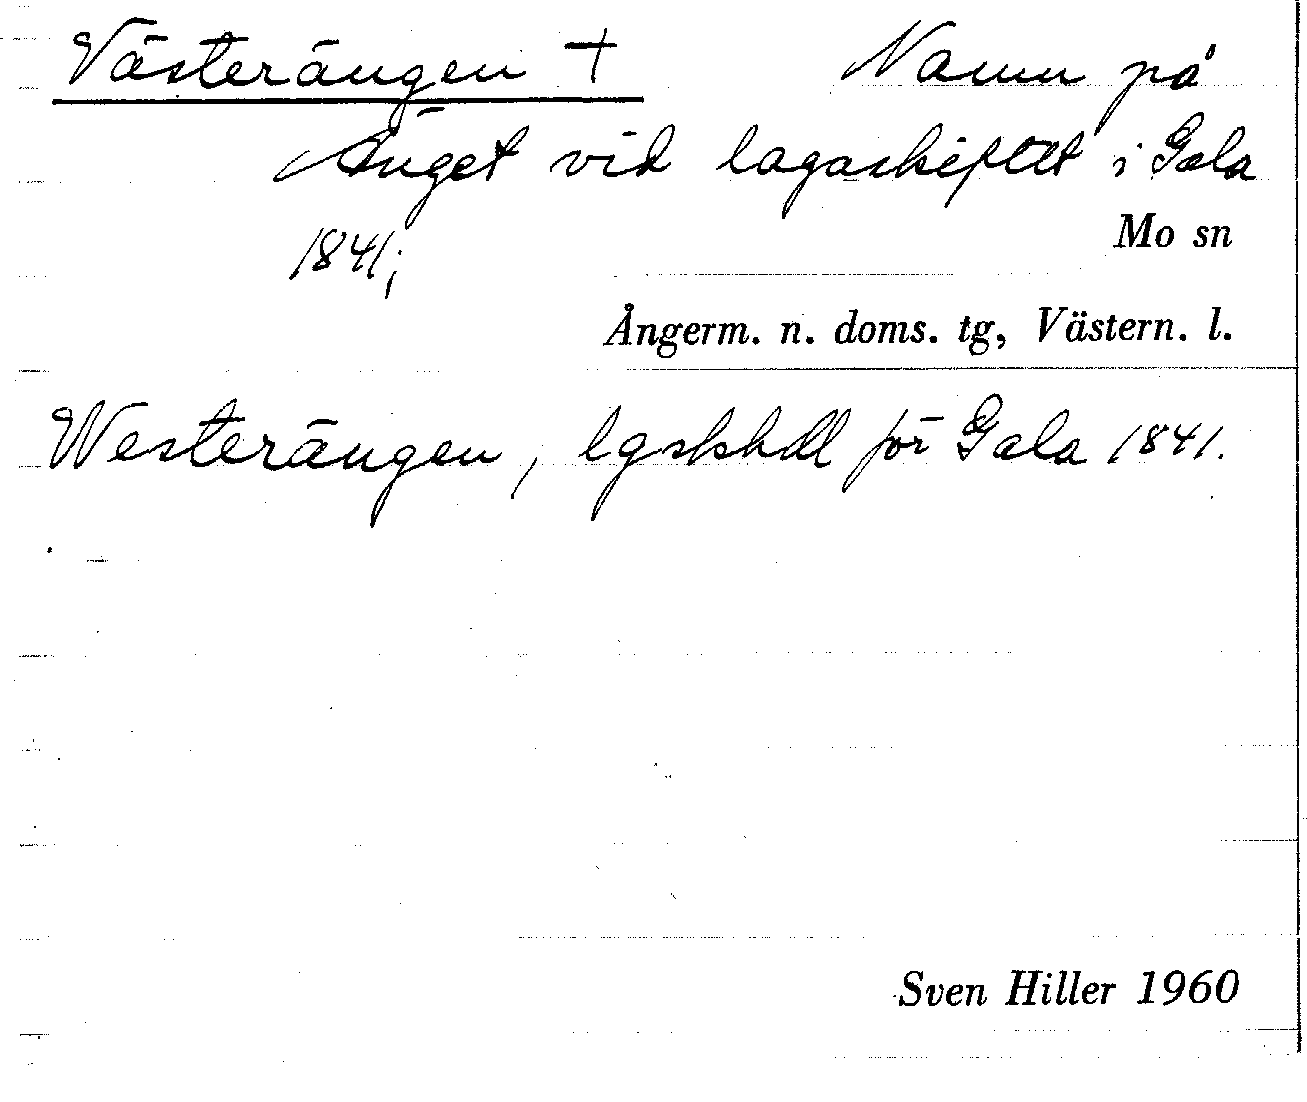 Västerängen † Namn på
Änget vid lagaskiftet i Gala
1841;
Mo sn
Ångerm. n. doms. tg, Västern. l.
Westerängen, lgskhdl för Gala 1841.
Sven Hiller 1960